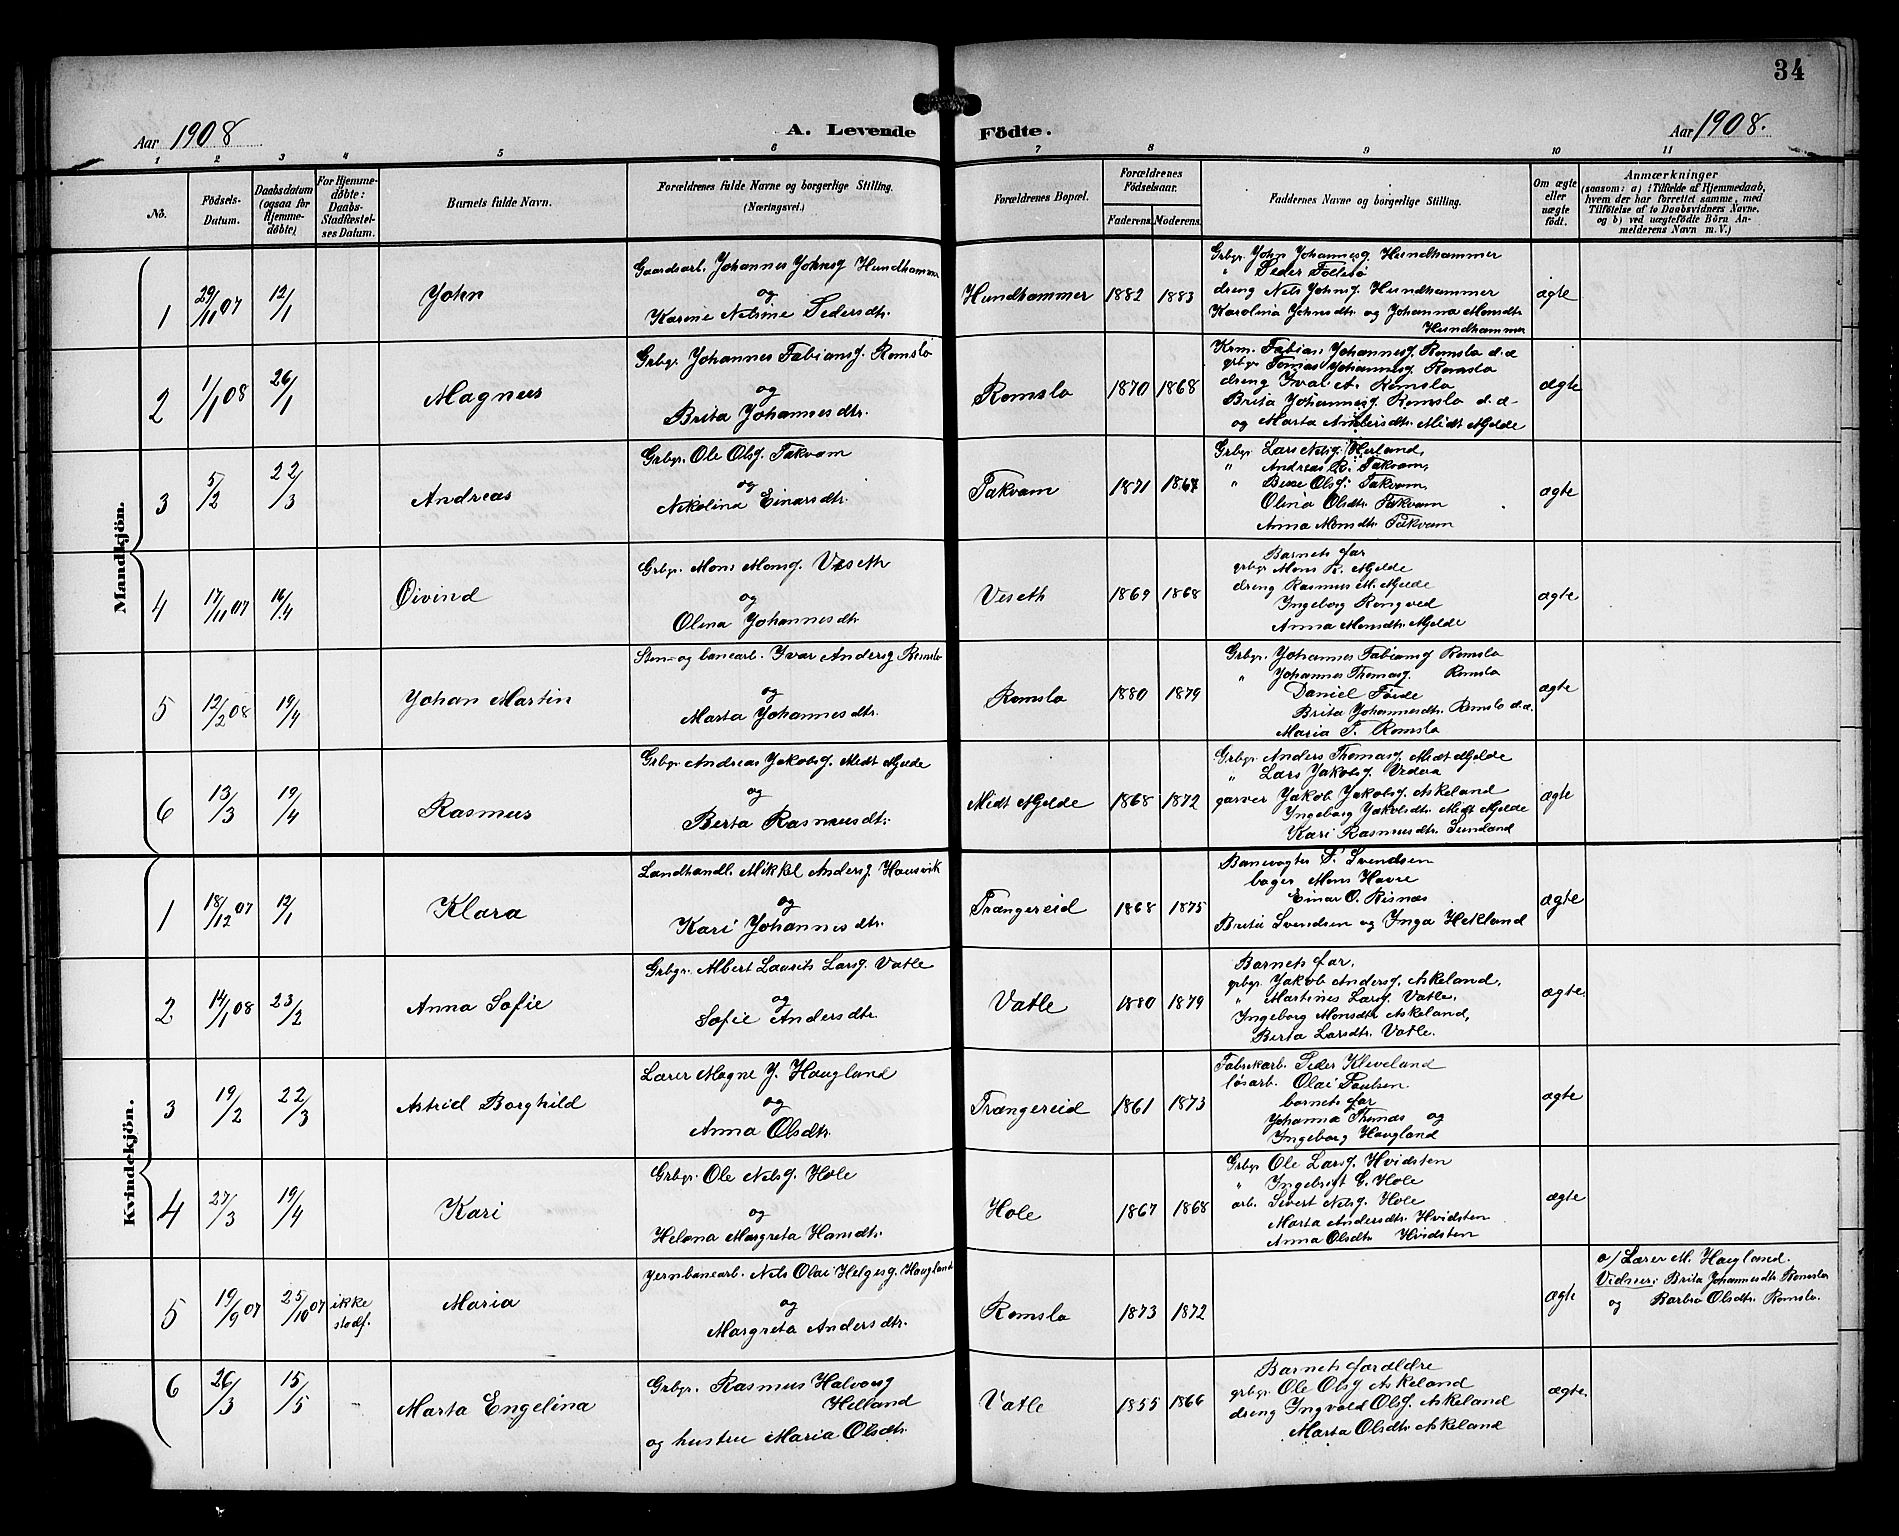 34
Aar 1908
A. Levende Födte.
Aar 1908.
1 2 3 4 5 6 7 8 9 10 11
No.
Födsels-
Datum.
Daabsdatum
(ogsaa for
Hjemme-
døbte)
For Hjemme-
døbte:
Daabs-
Stadfæstel-
ses Datum.
Barnets fulde Navn.
Forældrenes fulde Navne og borgerlige Stilling.
(Næringsvei.)
Forældrenes Bopæl.
Forældrenes
Födselsaar.
Faderens. Moderens.
Faddernes Navne og borgerlige Stilling.
Om ægte
eller
uægte
födt.
Anmærkninger
(saasom: a) i Tilfælde af Hjemmedaab,
hvem der har forrettet samme, med
Tilföielse af to Daabsvidners Navne,
og b) ved uægtefödte Börn An-
melderens Navn m. V.)
Mandkjön.
1 29/11 07 12/1 John
Gaardsarb. Johannes Johnsg Hundhammer
og
Karine Nelsine Pedersdtr.
Hundhammer 1882 1883
Grbgr. John Johannesg. Hundhammer
" Peder Tollesö
dreng Nels Johnsg. Hundhammer
Karolina Johnsdtr og Johanna Monsdtr
Hundhammer
ægte
2 1/1 08 26/1 Magnus
Grbgr. Johannes Fabiansg. Romslo
og
Brita Johannesdtr.
Romslo 1870 1868
Krm. Fabian Johannesg. Romslo d.æ
grbgr. Tomas Johannesg Romslo
dreng Ivar A. Romslo
Brita Johannesg. Romslo d.æ
og Marta Andersdtr. Midt Mjelde
ægte
3 5/2 22/3 Andreas
Grbgr. Ole Olsg. Takvam
og
Nikolina Einarsdtr.
Takvam 1871 1867
Grbgr. Lars Nelsg. Herland,
" Andreas R. Takvam,
" Olsg. Takvam,
Olina Olsdtr. Takvam
Anna Monsdtr. Takvam
ægte
4 17/11 07 16/4 Öivind
Grbgr. Mons Monsg. Veseth
og
Olina Johannesdtr.
Veseth 1869 1868
Barnets far
grbgr Mons R. Mjelde
dreng Rasmus M. Mjelde
Ingeborg Romgved
Anna Monsdtr. Mjelde
ægte
5 12/2 08 19/4 Johan Martin
Sten- og banearb. Ivar Andersg Romslo
og
Marta Johannesdtr.
Romslo 1880 1879
Grbgr. Johannes Fabiansg Romslo
" Johannes Thomasg. Romslo
Daniel Förde
Brita Johannesdtr. Romslo d.æ.
Maria T. Romslo
ægte
6 13/3 19/4 Rasmus
Grbgr. Andreas Jakobsg. Midt Mjelde
og
Berta Rasmusdtr.
Midt Mjelde 1868 1872
Grbgr. Anders Thomasg. Midt Mjelde
" Lars Jakobsg. Vedaa
garver Jakob Jakobsg. Askeland
Ingeborg Jakobsdtr. Midt Mjelde
Kari Rasmusdtr. Sundland
ægte
Kvindekjön.
1 18/12 07 12/1 Klara
Landhandl. Mikkel Andersg. Hausvik
og
Kari Johannesdtr.
Trængereid 1868 1875
Banevogter P. Svendsen
bager Mons Havre
Einar O. Risnæs
Brita Svendsen og Inga Hekland
ægte
2 14/1 08 23/2 Anna Sofie
Grbgr. Albert Laurits Larsg. Vatle
og
Sofie Andersdtr.
Vatle 1880 1879
Barnets far,
grbgr. Jakob Andersg. Askeland,
" Martines Larsg Vatle,
Ingeborg Monsdtr Askeland,
Berta Larsdtr. Vatle.
ægte
3 19/2 22/3 Astrid Borghild
Lærer Magne J. Haugland
og
Anna Olsdtr.
Trængereid 1861 1873
Fabrikarb. Peder Kleveland
lösarb. Olai Paulsen.
barnets far
Johanna Thomas og
Ingeborg Haugland
ægte
4 27/3 19/4 Kari
Grbgr. Ole Nelsg. Hole
og
Helena Margreta Hansdtr.
Hole 1867 1868
Grbgr Ole Larsg. Hvidsten
" Ingebrigt G. Hole
arb. Sivert Nelsg. Hole
Marta Andersdtr. Hvidsten
Anna Olsdtr. Hvidsten
ægte
5 19/9 07 25/10 07 ikke
stadf.
Maria
Jernbanearb. Nels Olai Helgesg. Haugland
og
Margreta Andersdtr.
Romslo 1873 1872
ægte
a/ Lærer M. Haugland.
Vidner: Brita Johannesdtr Romslo
og Barbro Olsdtr. Romslo.
6 26/3 15/5 - Marta Engelina
Grbgr. Rasmus Halvorsg
Helland
og hustru Maria Olsdtr.
Vatle 1855 1866
Barnets forældre
grbgr. Ole Olsg Askeland
dreng Ingvald Olsg. Askeland
Marta Olsdtr Askeland
ægte